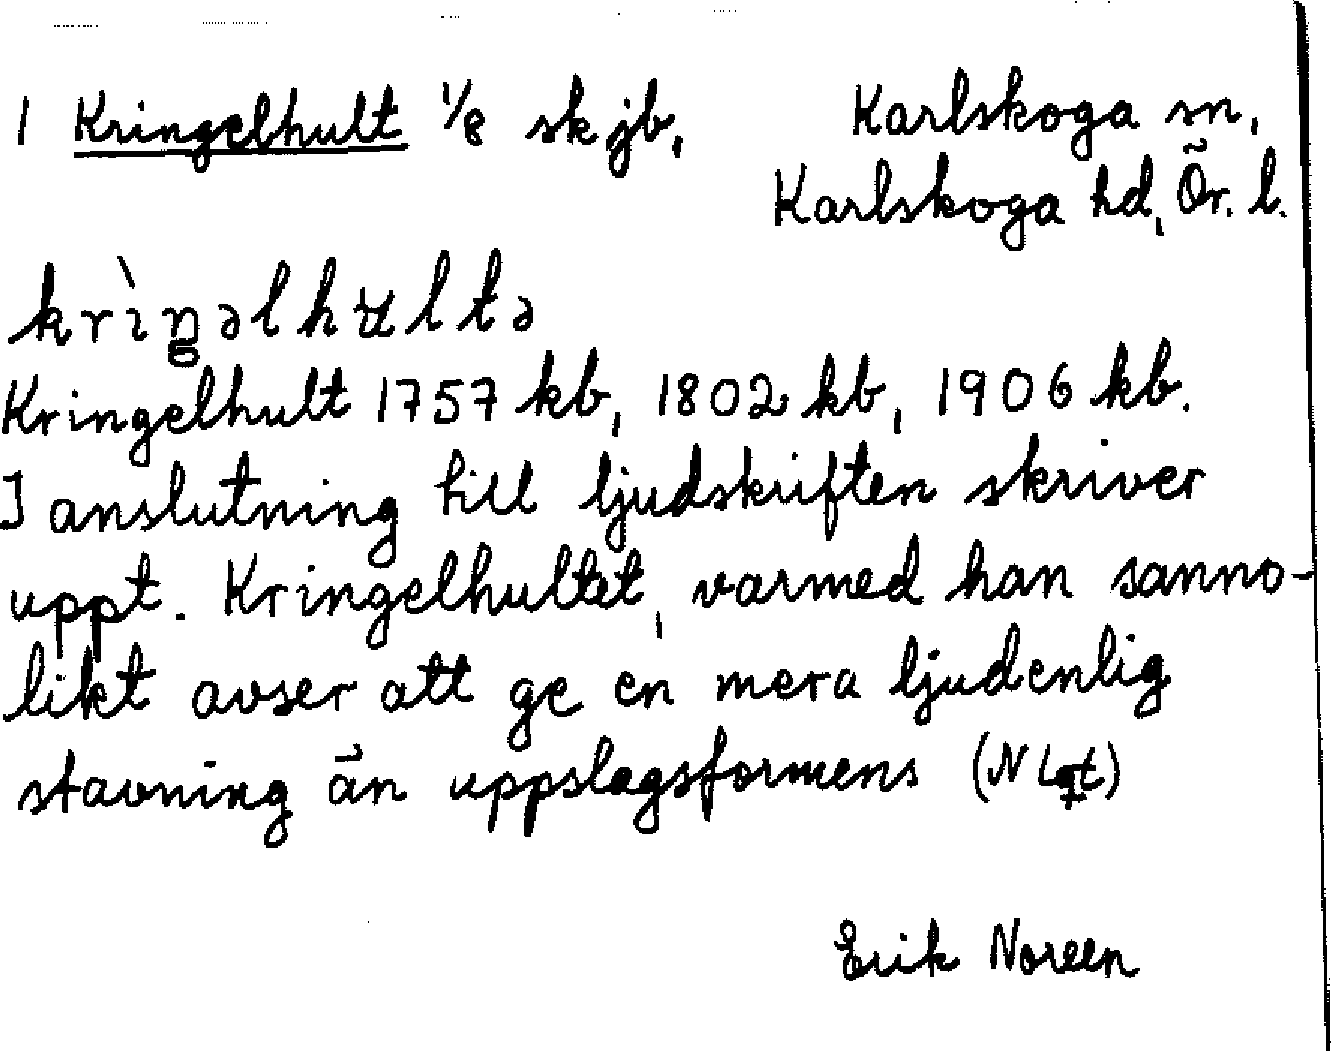 1 Kringelhult 1/8 skjb, Karlskoga sn,
Karlskoga hd, Ör. l.
krìŋəlhʉltə
Kringelhult 1757 kb, 1802 kb, 1906 kb.
I anslutning till ljudskriften skriver
uppt. Kringelhultet, varmed han sanno-
likt avser att ge en mera ljudenlig
stavning än uppslagsformens (N
Erik Noreen